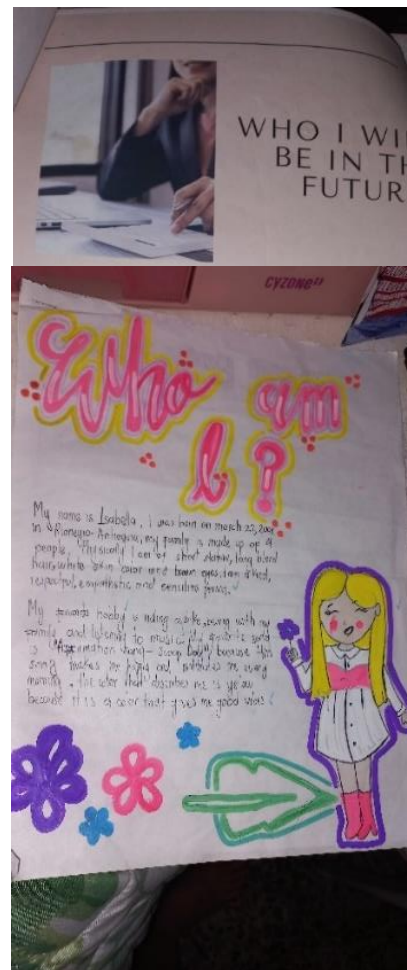 WHO I WI
BE IN TH
FUTUR
CYZONE
Who am
I ?
My name is Isabella, I was born on march 22, 
in Rionegro-Antioquia, my family is made up of 4
people, Physically I am of short stature, long blond
hair, white skin color and brown eyes, I am a kind,
respectful, empathetic and sensitive person.
My favorite hobby is riding a bike, being with my
animals, and listening to music. My favorite song
is (Affirmation song - Snoop Dogg) because this
song makes me happy and motivates me every
morning, the color that describes me is yellow
because it is a color that gives me good vibes